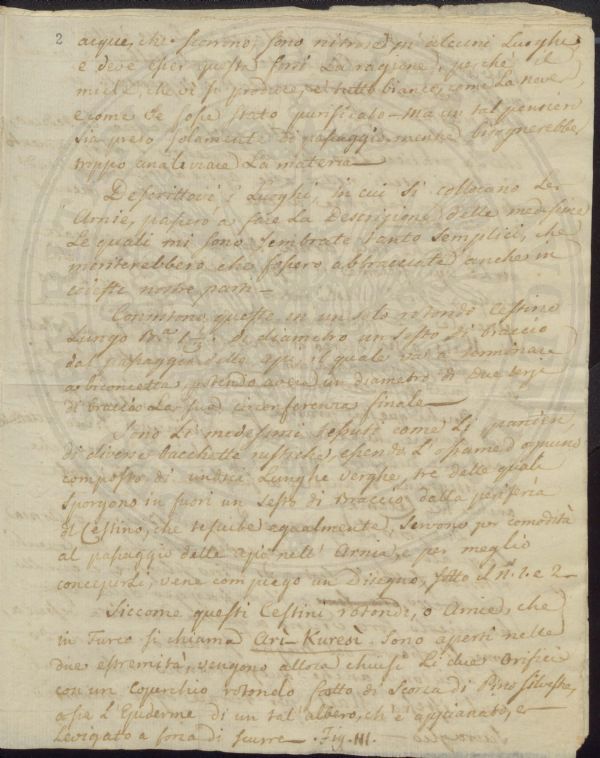 2
acque, che scorrono, sono nitrose in alcuni Luoghi
e deve esser questa forse La ragione, perchè il
miele, che vi si produce, è tutto bianco, come La neve
e come se fosse stato purificato — Ma un tal pensier
sia preso solamente di passaggio mentre bisognerebbe
troppo La materia —
Descrittovi i Luoghi, in cui si collocano Le
Arnie, passerò a fare La Descrizione delle medesime
Le quali mi sono sembrate tanto semplici, che
meriterebbero che fossero abbracciate anche in
codesti nostri paesi —
Consistono queste in un solo rotondo Cestino
Lungo Br.ª 1½ di diametro un sesto di Braccio
dal passaggio delle api, il quale va a terminare
a potendo avere un diametro di due terzi
di braccio La sua circonferenza finale —
Sono Li medesimi tessuti come Li panieri
di diverse bacchette rustiche, essendo L'ossame d'ognuno
composto di undici Lunghe verghe, tre delle quali
sporgono in fuori un sesto di Braccio dalla periferia
del Cestino, che tessute egualmente, servono per comodità
al passaggio delle api nell' Arnia, e per meglio
concepirli, vene compiego un Disegno, sotto il N. 1. e 2 —
Siccome questi Cestini rotondi, o Arnie, che
in Turco si chiama Arì-Kuresì sono aperti nelle
due estremità, vengono allora chiusi Li due Orifici
con un coperchio rotondo fatto di Scorza di Pino Silvestre,
ossia L'Epiderme di un tal' albero, ch' è appianato, e
Levigato a forza di scurre — Fig. III.